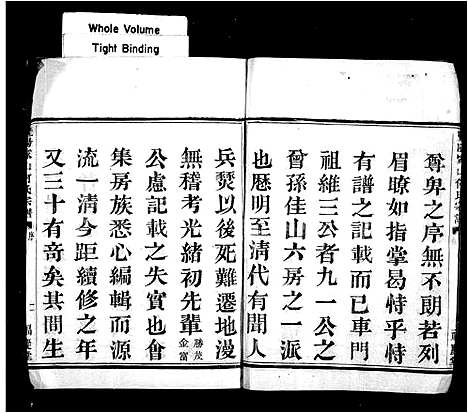 Whole Volume
Tight Binding
尊卑之序無不朗若列
眉瞭如指掌曷恃乎恃
有譜之記載而已車門
祖維三公者九一公之
曾孫佳山六房之一派
也厯明至清代有聞人
兵燹以後死難遷地漫
無稽考光緒初先輩勝茂金富
公慮記載之失實也曾
集房族悉心編輯而源
流一清今距續修之年
又三十有竒矣其間生